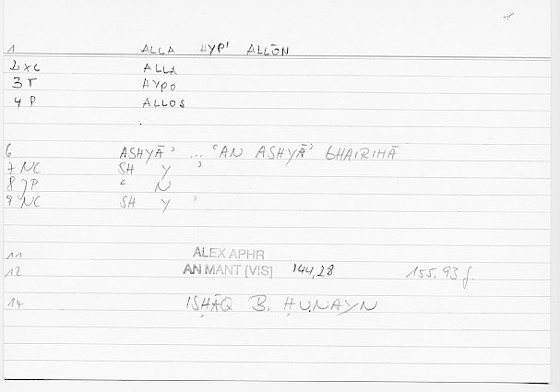 1
1 ALLA HYP' ALLŌN
2 XC ALLA
3 T HYPO
4 P ALLOS
6 ASHYĀ' ... 'AN ASHYĀ' GHAIRIHĀ
7 NC SH Y '
8 JP ' N
9 NC SH Y '
11 ALEX APHR
12 AN MANT [VIS] 144,28 155.93 f.
14 ISḤĀQ B. ḤUNAYN